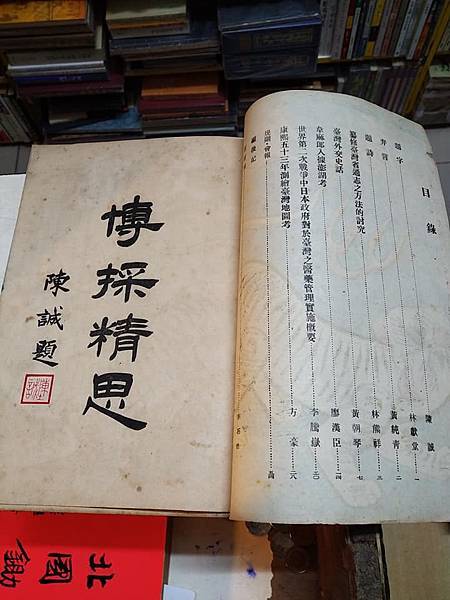 目錄
題字……陳誠
弁言……林獻堂……一
題詩……黃純青……二
纂修臺灣省通志之方法的討究……林熊祥……三
臺灣外交史話……黃朝琴……七
韋麻郎入據澎湖考……廖漢臣……一四
世界第二次戰爭中日本政府對於臺灣之醫藥管理實施概要……李騰嶽……二〇
康熙五十三年測繪臺灣地圖考……方豪……二八
編後記
博採精思
陳誠題
北國鋤